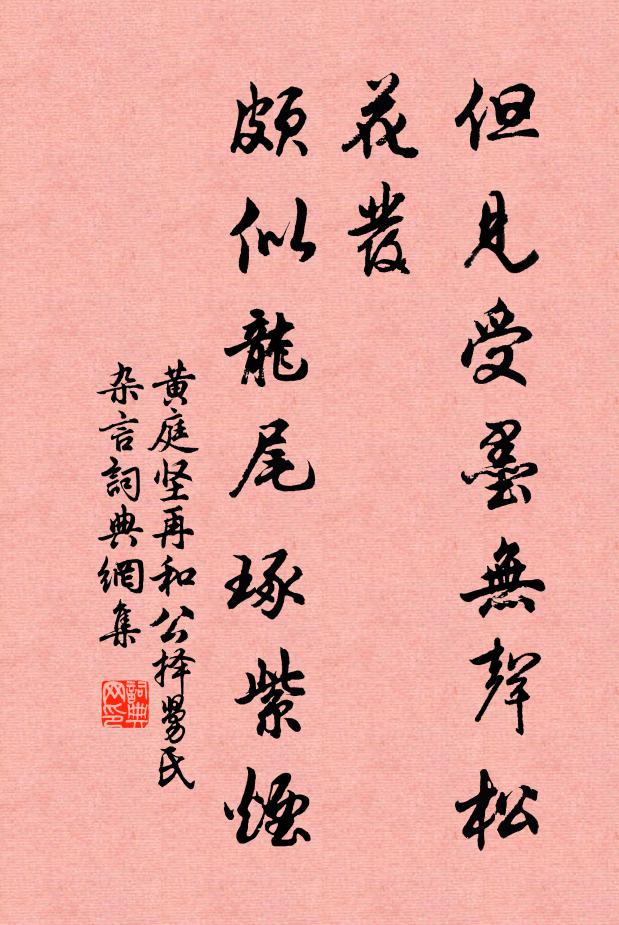 但見受墨無聲松
花發
頗似龍尾琢紫煙
黄庭坚再和公择舅氏
杂言詞典網集
詞典
网印